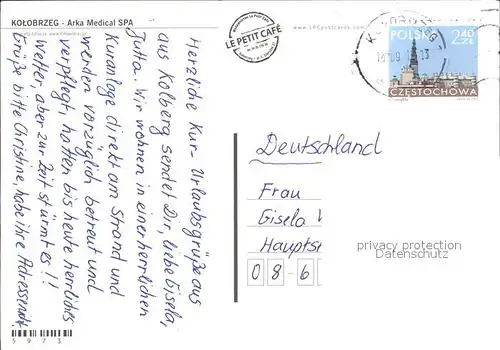 KOŁOBRZEG - Arka Medical SPA
LE PETIT CAFÉ
www.LPCpostcards.com
POLSKA 2,40 ZŁ
CZĘSTOCHOWA
Herzliche Kur-Urlaubsgrüße aus
aus Kolberg sendet Dir, liebe Gisela,
Jutta. Wir wohnen in einer herrlichen
Kuranlage direkt am Strand und
werden vorzüglich betreut und
verpflegt, hatten bis heute herrliches
Wetter, aber zur Zeit stürmt es!!
Grüße bitte Christine, habe ihre Adresse nicht
Deutschland
Frau
Gisela
Haupts
08-6
privacy protection
Datenschutz
5973